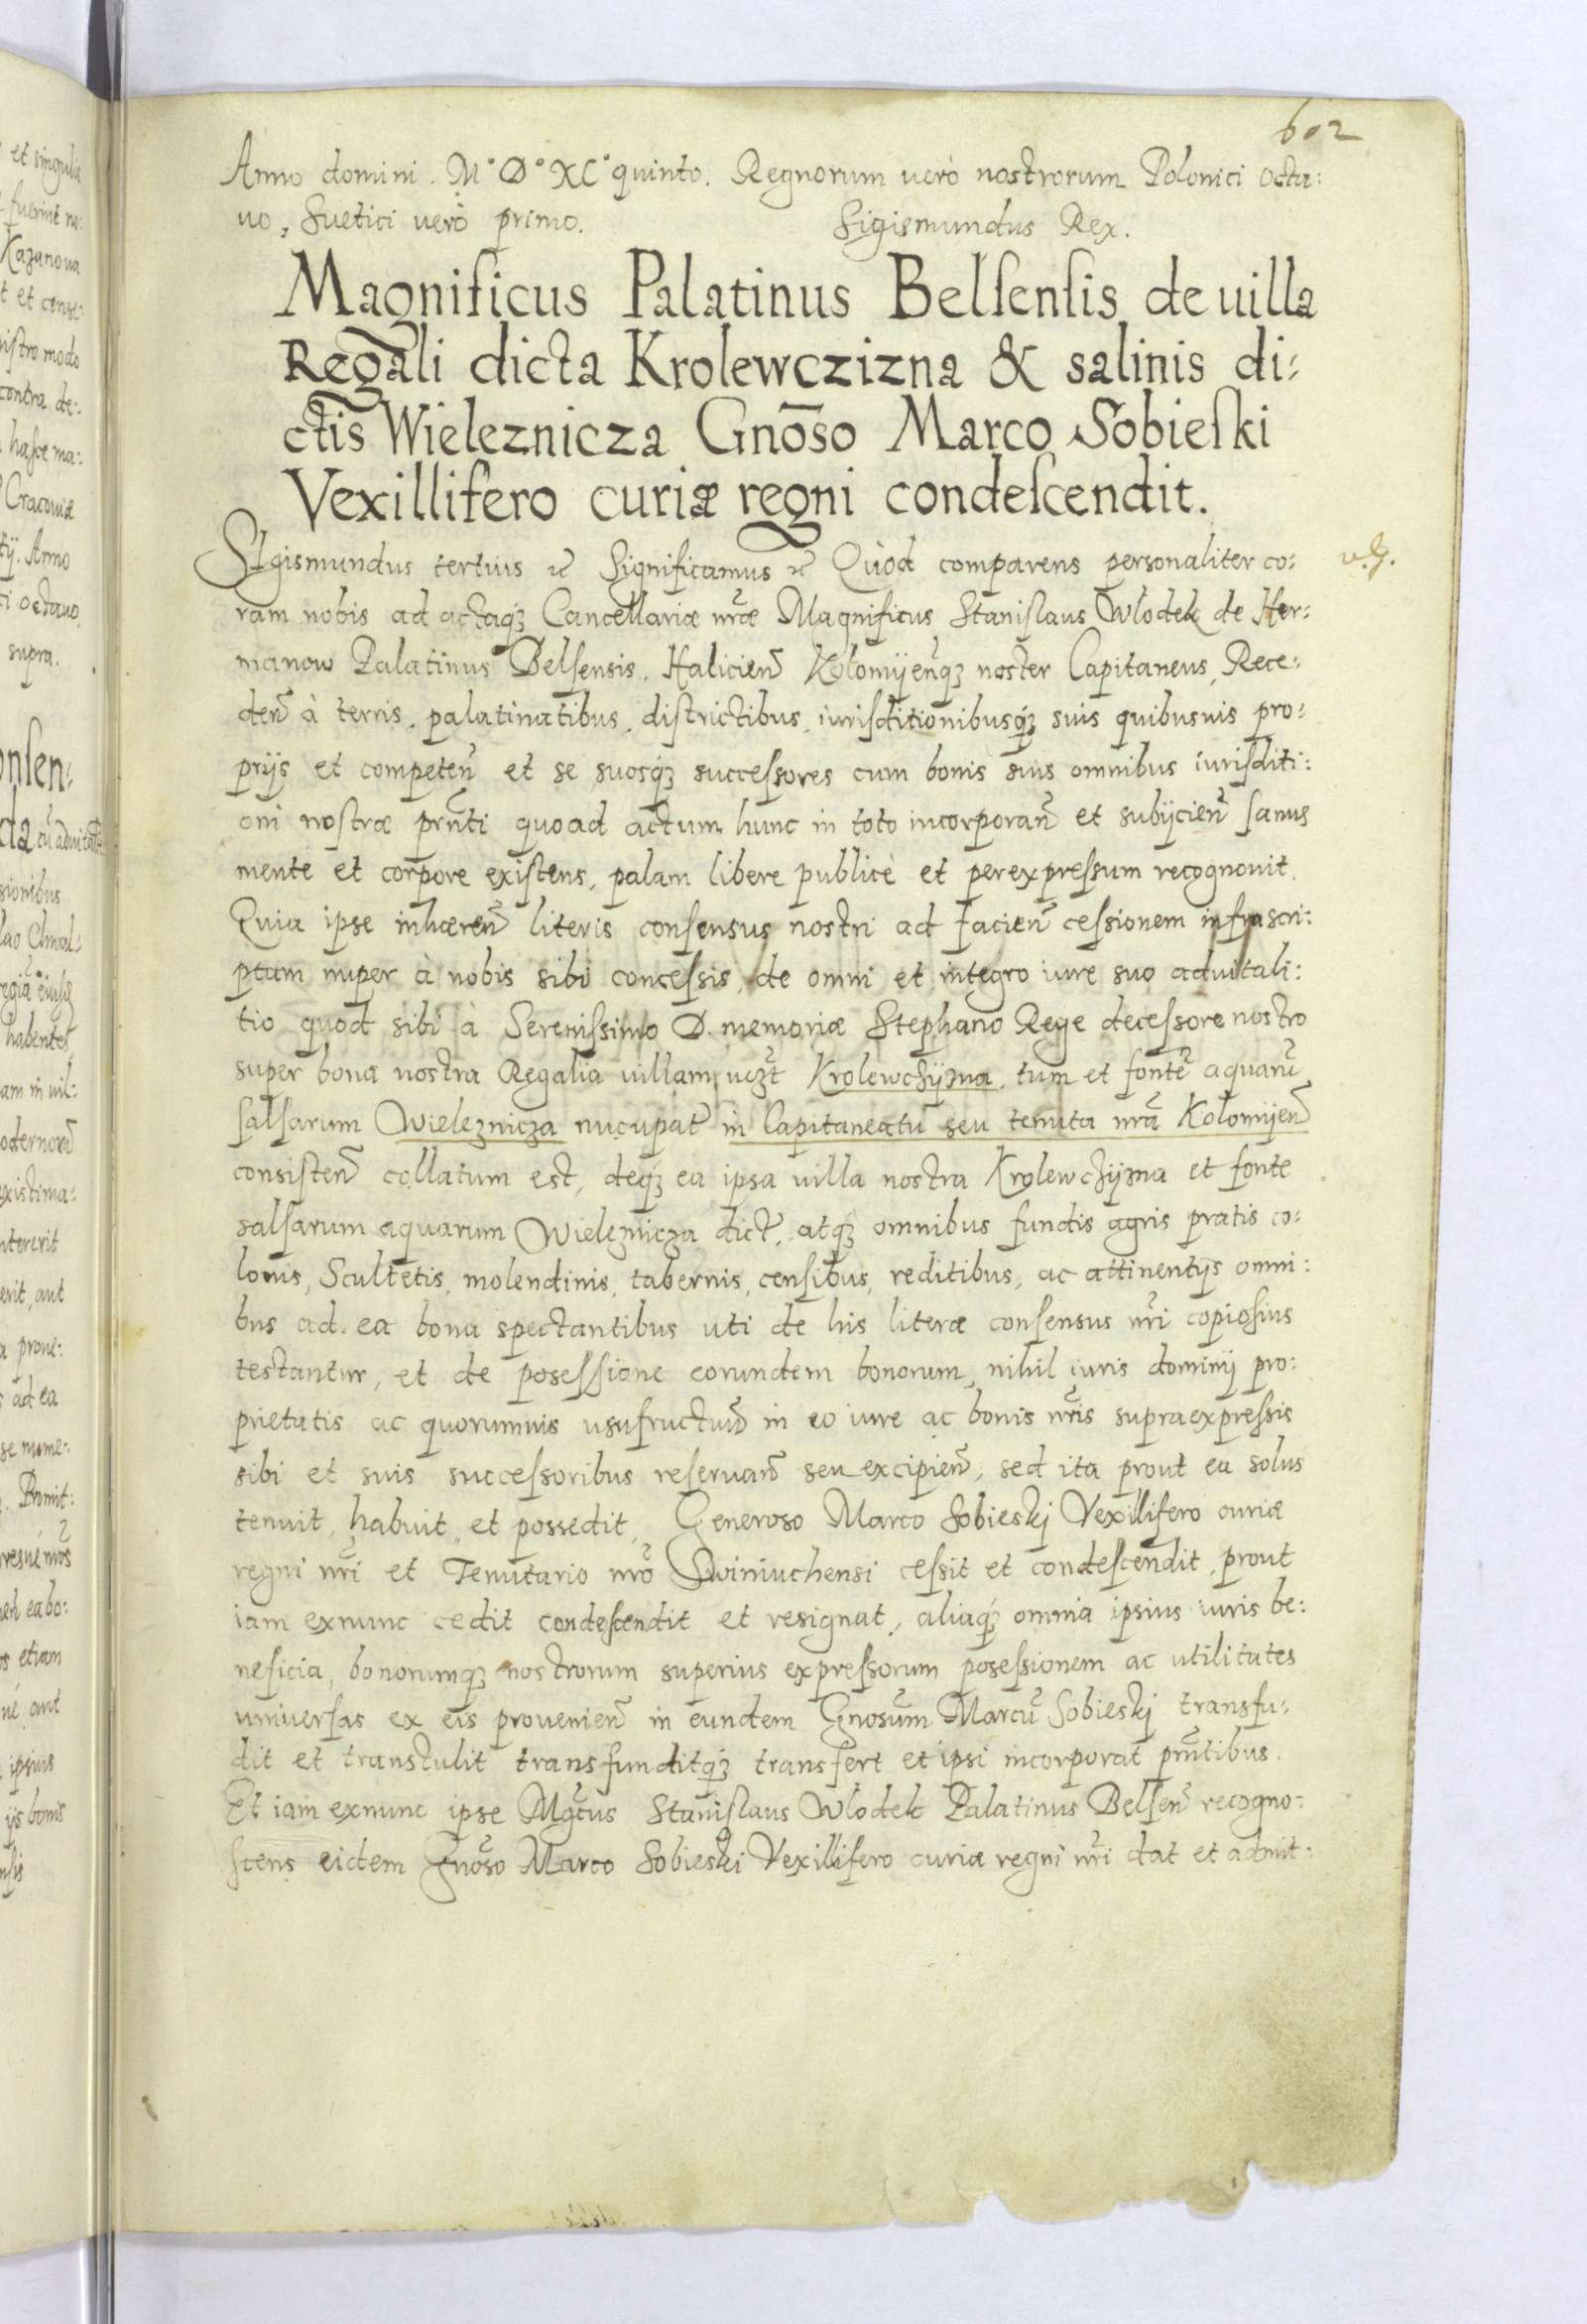 602
Anno domini. M° D° XC° quinto. Regnorum verò nostrorum Polonici octa:
uo, Suetici verò primo. Sigismundus Rex.
Magnificus Palatinus Belsensis de uilla
Regali dicta Krolewczizna & salinis di:
ctis Wieleznicza Gnõso Marco Sobieski
Vexillifero curiæ regni condescendit.
SIgismundus tertius etc Significamus etc Quòd comparens personaliter co:
v. g.
ram nobis ad actaq₃ Cancellariæ nr̃æ Magnificus Stanislaus Wlodek de Her:
manow Palatinus Belsensis. Halicien̄ Kolomijen̄q₃ noster Capitaneus, Rece:
den̄ à terris, palatinatibus, districtibus, iurisditionibusq₃ suis quibusuis pro:
prijs et competen̄ et se suosq₃ successores cum bonis suis omnibus iurisditi:
oni nostræ prñti quoad actum hunc in toto incorporan̄ et subijcien̄ sanus
mente et corpore existens, palam libere publicè et perexpressum recognouit.
Quia ipse inhæren̄ literis consensus nostri ad facien̄ cessionem infrascri:
ptam nuper à nobis sibi concessis, de omni et integro iure suo aduitali:
tio quod sibi à Serenissimo D. memoriæ Stephano Rege decessore nostro
super bona nostra Regalia uillam uczt Krolewczijzna, tum et fontẽ aquarũ
salsarum Wieleznicza nucupat̃ in Capitaneatu seu tenuta nr̃a Kolomijen̄
consisten̄ collatum est, deq₃ ea ipsa uilla nostra Krolewczijzna et fonte
salsarum aquarum Wieleznicza dict̃, atq₃ omnibus fundis agris pratis co:
lonis, Scultetis, molendinis, tabernis, censibus, reditibus, ac attinentijs omni:
bus ad ea bona spectantibus uti de his literæ consensus nr̃i copiosius
testantur, et de posessione eorundem bonorum, nihil iuris dominij pro:
prietatis ac quorumuis usufructuũ in eo iure ac bonis nr̃is supraexpressis
sibi et suis successoribus reseruan̄ seu excipien̄, sed ita prout ea solus
tenuit, habuit, et possedit, Generoso Marco Sobieskj Vexillifero curiæ
regni nr̃i et Tenutario nr̃o Swiniuchensi cessit et condescendit, prout
iam exnunc cedit condescendit et resignat, aliaq₃ omnia ipsius iuris be:
neficia, bonorumq₃ nostrorum superius expressorum posessionem ac utilitates
uniuersas ex eis prouenien̄ in eundem Gnosũm Marcũ Sobieskj transfu:
dit et transtulit transfunditq₃ transfert et ipsi incorporat prñtibus.
Et iam exnunc ipse Mgc̃us Stanislaus Wlodek Palatinus Belsen̄ recogno:
scens eidem Gnõso Marco Sobieski Vexillifero curiæ regni nr̃i dat et admit: